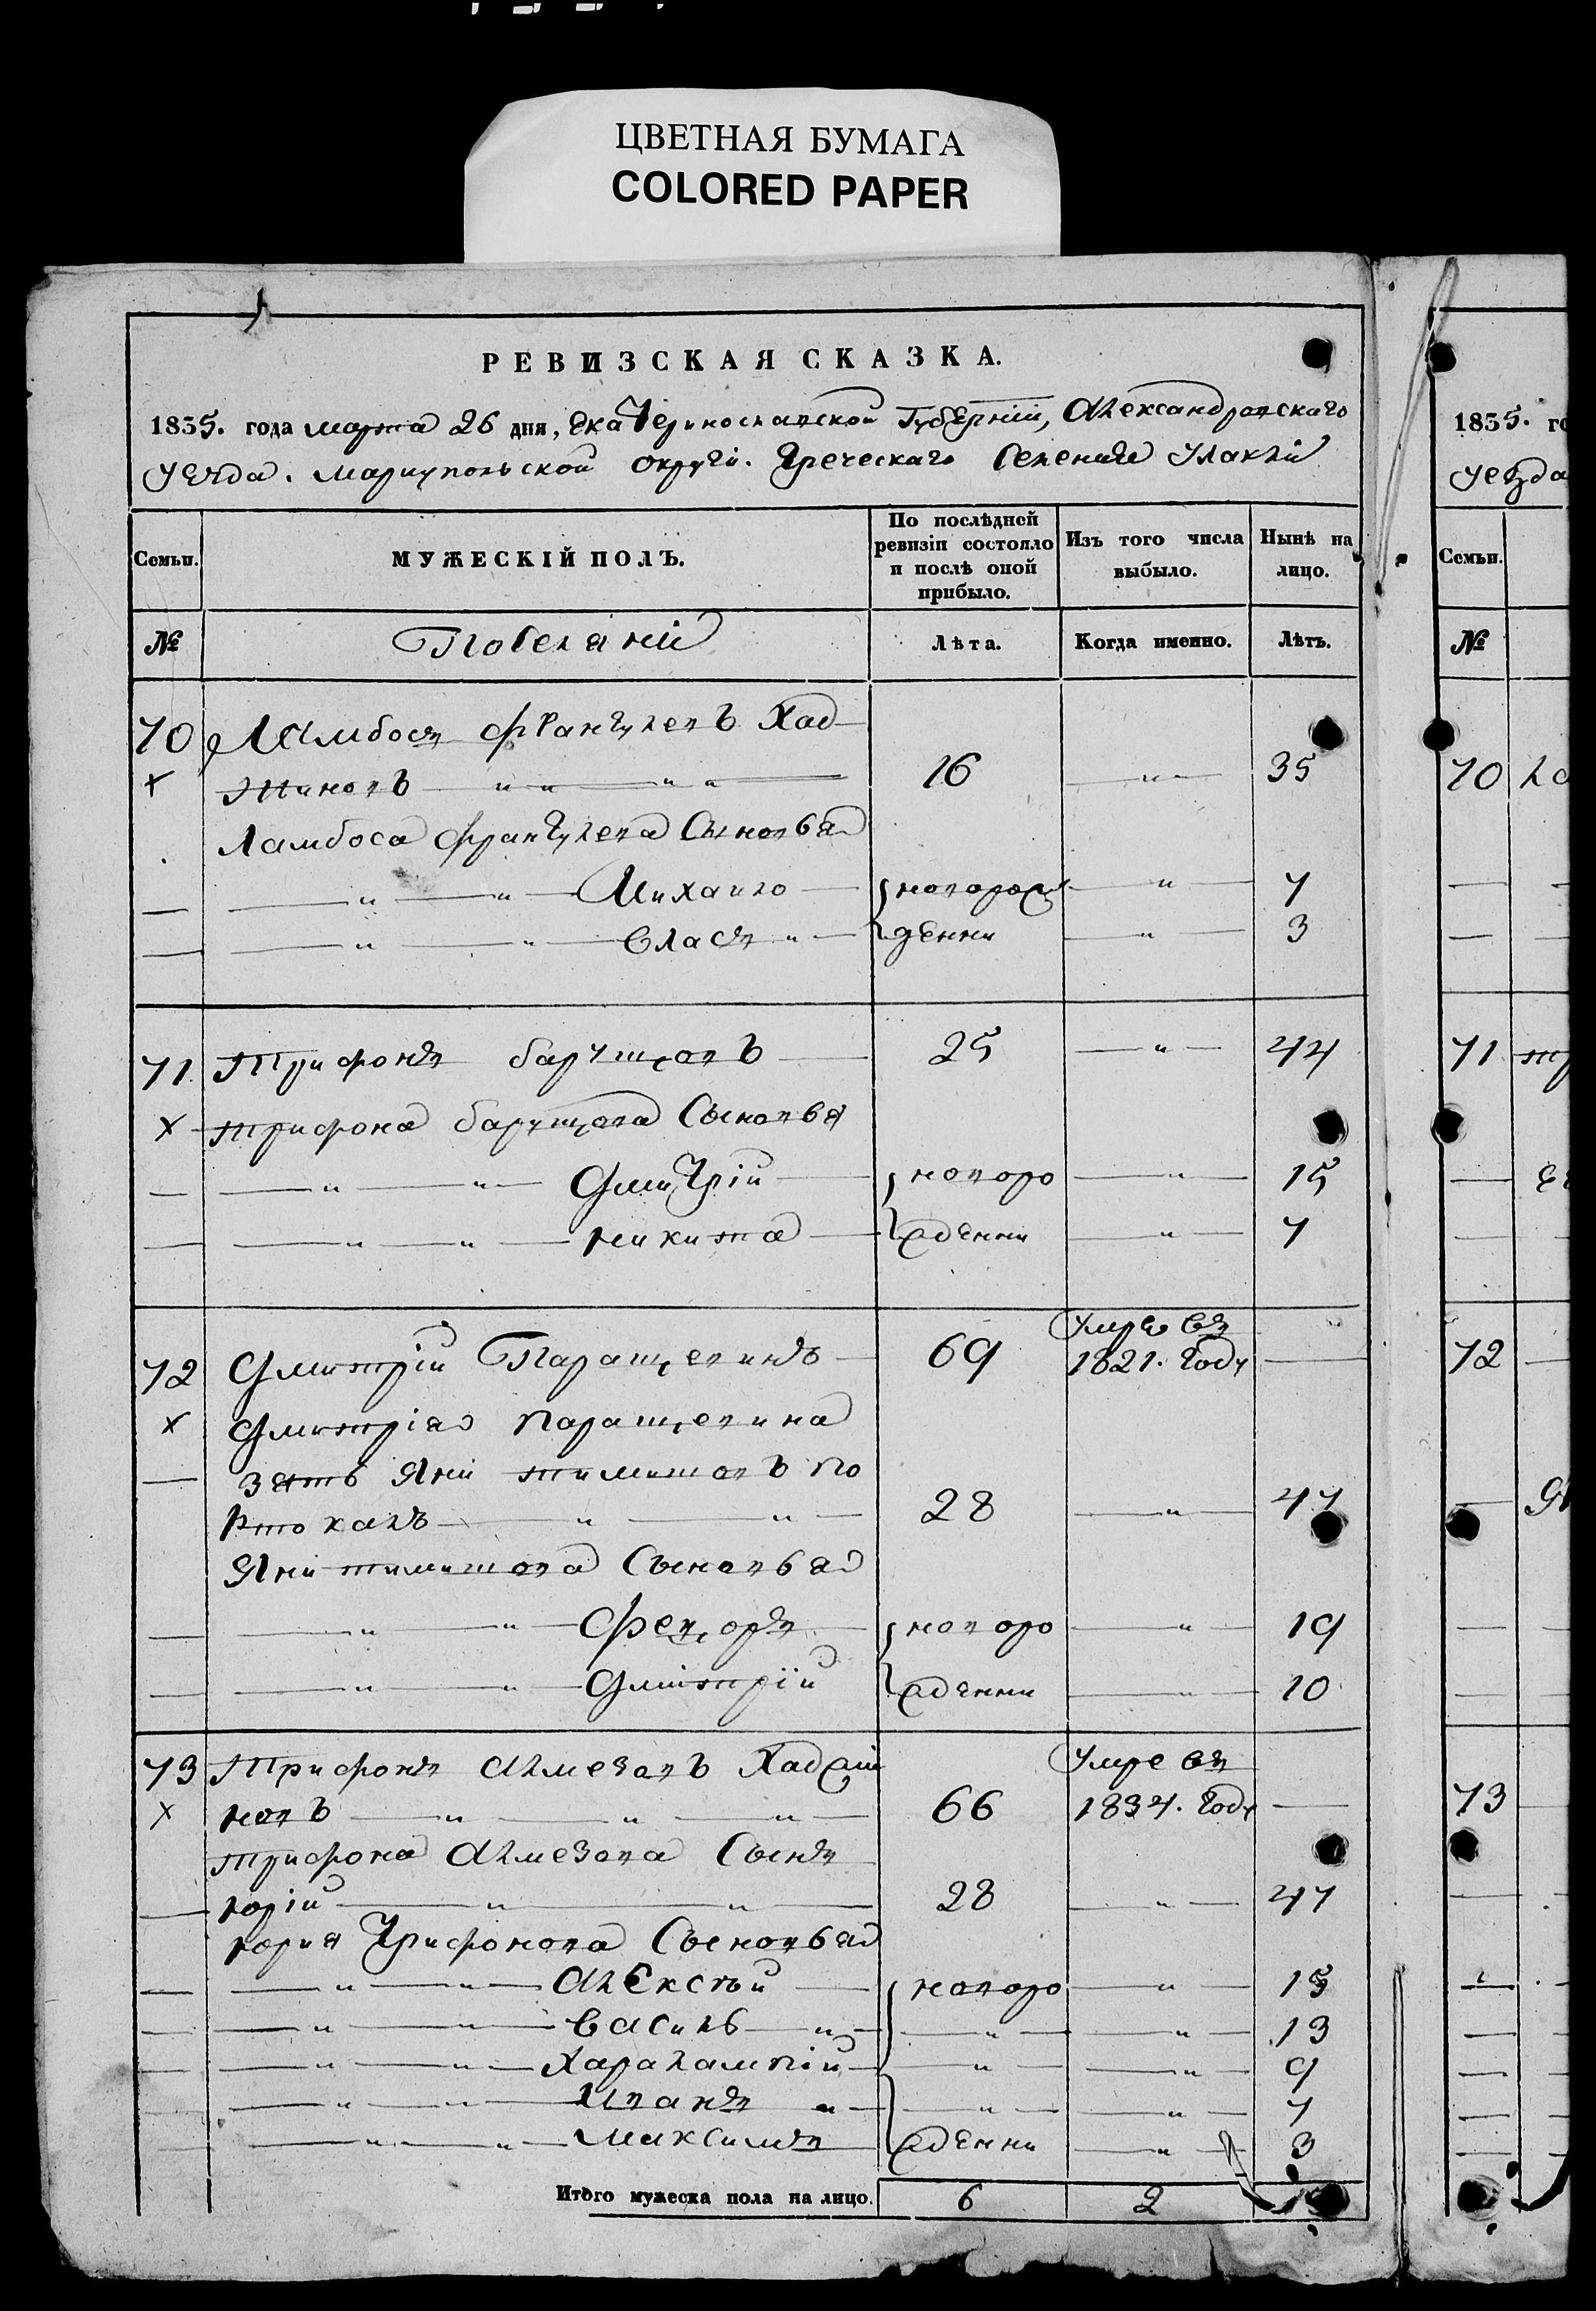 ЦВЕТНАЯ БУМАГА
COLORED PAPER
РЕВИЗСКАЯ СКАЗКА.
1835. года марта 26 дня, Екатериославской Губерніи, Александровскаго
Уезда. Мариупольской округи. Греческаго Селения Улаклы
Семьи.
МУЖЕСКІЙ ПОЛЪ.
По послѣдней ревизіи состояло и послѣ оной прибыло.
Изъ того числа выбыло.
Нынѣ на лицо.
№
Поселяни
Лѣта.
Когда именно.
Лѣтъ.
70 Ламбосъ Франгулевъ Хад
жиновъ 16 35
Ламбоса Франгулева Сыновья
Михайло новорож 7
Власъ денни 3
71 Трифонъ Барущовъ 25 44
Трифона Барущова Сыновья
Дмитрій новоро 15
Никита жденни 7
72 Дмитрій Паращевинъ 69 Умре въ 1821. Году
Дмитрія Паращевина
зять Яни Тимишовъ по
Ртокалъ 28 47
Яни Тимишова Сыновья
Феодоръ новоро 19
Дмітрїй жденни 10
73 Трифонъ Алмезовъ Хаджи
новъ 66 Умре въ 1834. Году
Трифона Алмезова Сынъ
Юрій 28 47
Юрия Трифонова Сыновья
Алексѣй новоро 15
Василь 13
Харалампій 9
Иванъ 7
Максимъ жденни 3
Итого мужеска пола на лицо. 6 2
1835. го
Уезда
Семьи.
№
70
71
72
73